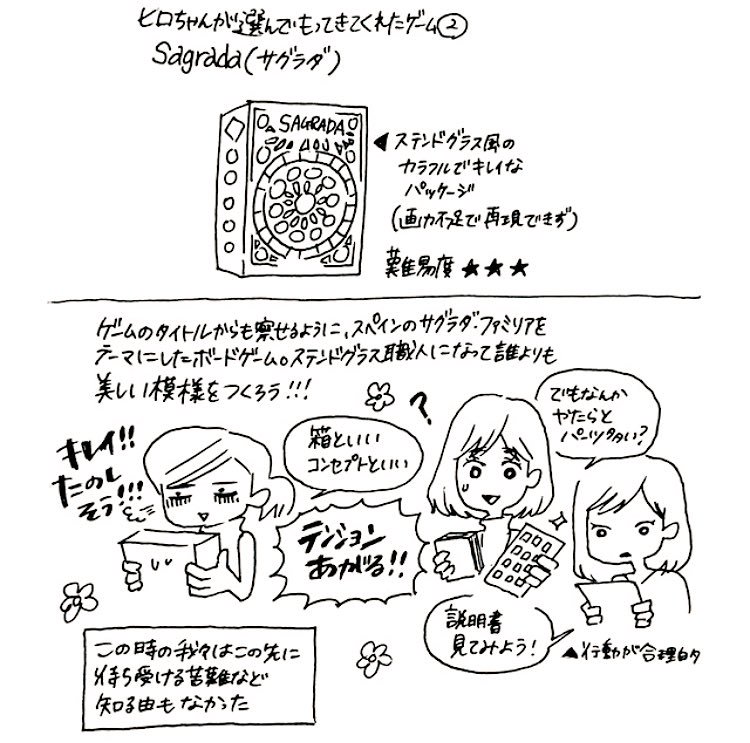 ヒロちゃんが選んでもってきてくれたゲーム②
Sagrada(サグラダ)
SAGRADA
◀ステンドグラス風の
カラフルでキレイな
パッケージ
(画力不足で再現できず)
難易度★★★
ゲームのタイトルからも察せるように、スペインのサグラダ・ファミリアを
テーマにしたボードゲーム。ステンドグラス職人になって誰よりも
美しい模様をつくろう!!!
キレイ!!
たのし
そう!!!
箱といい
コンセプトといい
テンション
あがる!!
?
でもなんか
やたらと
パーツ多い?
説明書
見てみよう!
▲行動が合理的
この時の我々はこの先に
待ち受ける苦難など
知る由もなかった